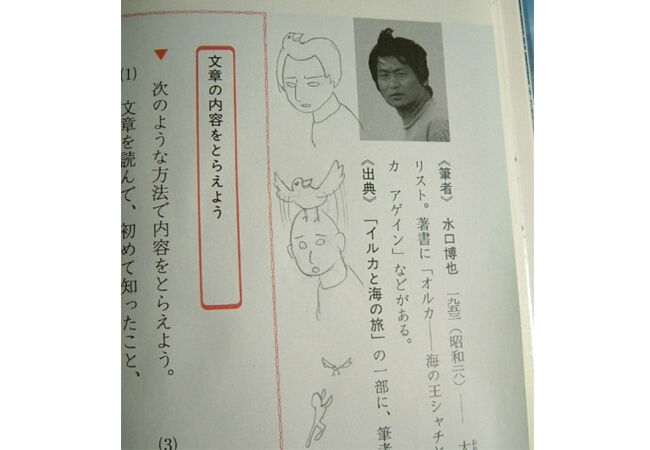 《筆者》 水口博也 一九五三（昭和二八）――
リスト。著書に「オルカ――海の王シャチと
カ アゲイン」などがある。
《出典》 「イルカと海の旅」の一部に、筆者
文章の内容をとらえよう
▼ 次のような方法で内容をとらえよう。
(1) 文章を読んで、初めて知ったこと、
(3)